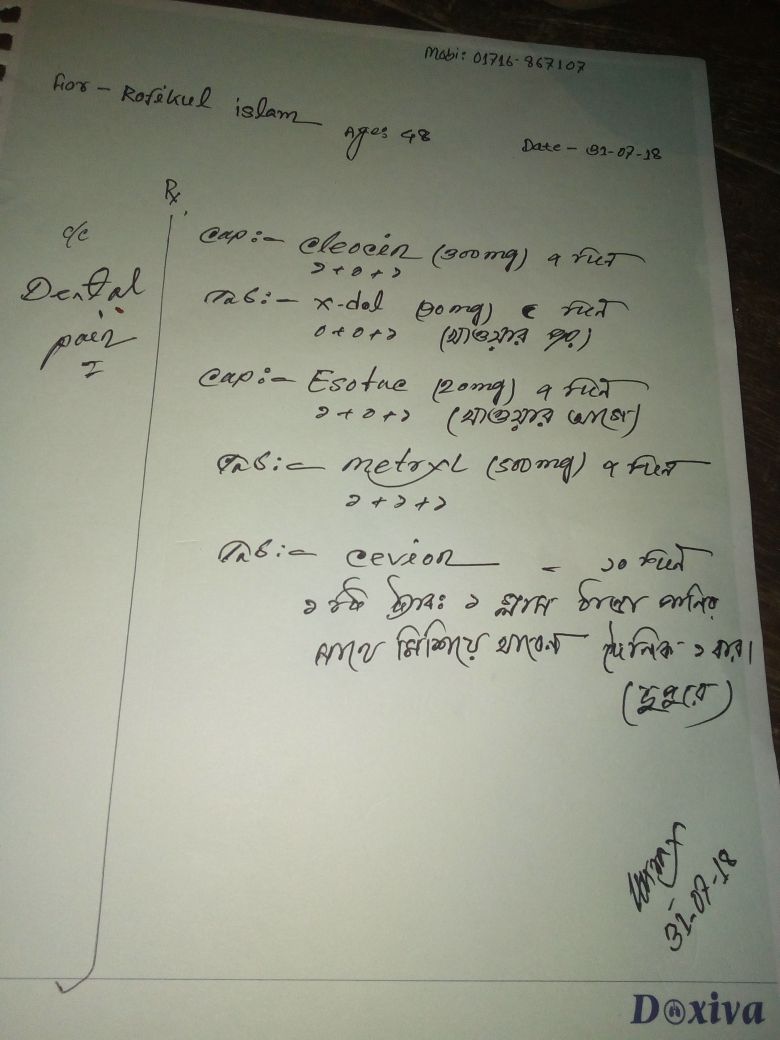 Mobi: 01716-867107
For - Rofikul islam
Age: 48
Date - 31-07-18
Rx
c/c
Dental
pain
Cap:- Cleocin (300mg) ৭ দিন
১+০+১
Tab:- x-dol (90mg) ৫ দিন
০+০+১ (খাওয়ার পর)
Cap:- Esotac (20mg) ৭ দিন
১+০+১ (খাওয়ার আগে)
Tab:- metryl (500mg) ৭ দিন
১+১+১
Tab:- Cevion - ১০ দিন
১ টি ট্যাবঃ ১ গ্লাস ঠান্ডা পানির
সাথে মিশিয়ে খাবেন দৈনিক ১ বার।
(দুপুরে)
31-07-18
Doxiva